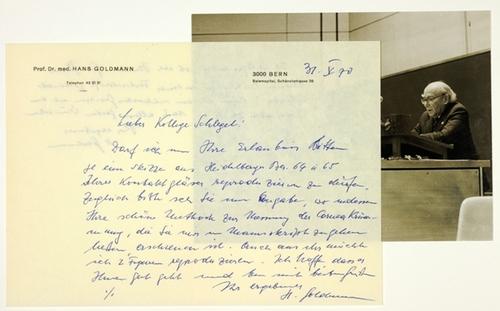 Prof. Dr. med. HANS GOLDMANN
Telephon
3000 BERN
31. X 70
Lieber Kollege Schlegel!
Darf ich um Ihre Erlaubnis bitten
je eine Skizze aus Heidelberger Ber. 64 u 65
Ihrer Kontaktgläser reproduzieren zu dürfen.
Zugleich bitte ich Sie um Angabe, wo
Ihre schöne Methode zur Messung der Cornea
die Sie mir im Manuskript
erschienen ist. Auch aus ihr möchte
ich 2 Figuren reproduzieren. Ich hoffe dass es
Ihnen gut geht und bin mit
Ihr ergebener
H. Goldmann